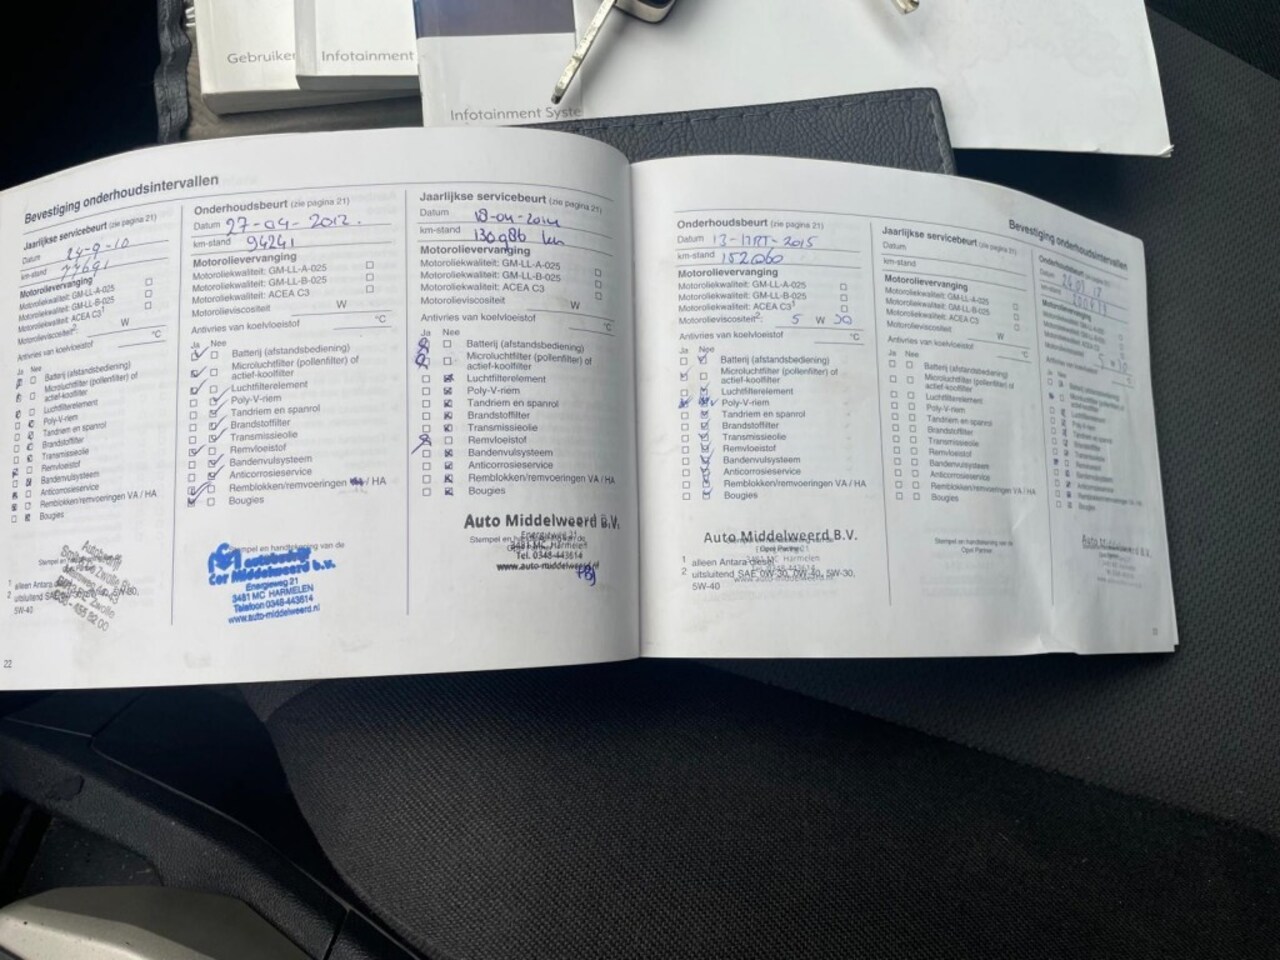 Gebruiker
Infotainment
Infotainment Syste
Bevestiging onderhoudsintervallen
Jaarlijkse servicebeurt (zie pagina 21)
Datum 24-9-10
km-stand
Motorolievervanging
Motoroliekwaliteit: GM-LL-A-025
Motoroliekwaliteit: GM-LL-B-025
Motoroliekwaliteit: ACEA C3¹
Motorolieviscositeit²: W
Antivries van koelvloeistof °C
Ja Nee
Batterij (afstandsbediening)
Microluchtfilter (pollenfilter) of
actief-koolfilter
Luchtfilterelement
Poly-V-riem
Tandriem en spanrol
Brandstoffilter
Transmissieolie
Remvloeistof
Bandenvulsysteem
Anticorrosieservice
Remblokken/remvoeringen VA / HA
Bougies
1 alleen Antara
2 uitsluitend SAE
5W-40
22
Onderhoudsbeurt (zie pagina 21)
Datum 27-04-2012.
km-stand 94241
Motorolievervanging
Motoroliekwaliteit: GM-LL-A-025
Motoroliekwaliteit: GM-LL-B-025
Motoroliekwaliteit: ACEA C3
Motorolieviscositeit W
Antivries van koelvloeistof °C
Ja Nee
Batterij (afstandsbediening)
Microluchtfilter (pollenfilter) of
actief-koolfilter
Luchtfilterelement
Poly-V-riem
Tandriem en spanrol
Brandstoffilter
Transmissieolie
Remvloeistof
Bandenvulsysteem
Anticorrosieservice
Remblokken/remvoeringen / HA
Bougies
Stempel en handtekening van de
Car Middelweerd b.v.
Energieweg 21
3481 MC HARMELEN
Telefoon 0348-443614
www.auto-middelweerd.nl
Jaarlijkse servicebeurt (zie pagina 21)
Datum 18-04-2014
km-stand 130986 km
Motorolievervanging
Motoroliekwaliteit: GM-LL-A-025
Motoroliekwaliteit: GM-LL-B-025
Motoroliekwaliteit: ACEA C3
Motorolieviscositeit W
Antivries van koelvloeistof °C
Ja Nee
Batterij (afstandsbediening)
Microluchtfilter (pollenfilter) of
actief-koolfilter
Luchtfilterelement
Poly-V-riem
Tandriem en spanrol
Brandstoffilter
Transmissieolie
Remvloeistof
Bandenvulsysteem
Anticorrosieservice
Remblokken/remvoeringen VA / HA
Bougies
Auto Middelweerd B.V.
Energieweg 21
3481 MC Harmelen
Tel. 0348-443614
www.auto-middelweerd.nl
Onderhoudsbeurt (zie pagina 21)
Datum 13-MRT-2015
km-stand 152060
Motorolievervanging
Motoroliekwaliteit: GM-LL-A-025
Motoroliekwaliteit: GM-LL-B-025
Motoroliekwaliteit: ACEA C3¹
Motorolieviscositeit²: 5 W 30
Antivries van koelvloeistof °C
Ja Nee
Batterij (afstandsbediening)
Microluchtfilter (pollenfilter) of
actief-koolfilter
Luchtfilterelement
Poly-V-riem
Tandriem en spanrol
Brandstoffilter
Transmissieolie
Remvloeistof
Bandenvulsysteem
Anticorrosieservice
Remblokken/remvoeringen VA / HA
Bougies
Auto Middelweerd B.V.
1 alleen Antara diesel
2 uitsluitend SAE 0W-30, 0W-40, 5W-30,
5W-40
Bevestiging onderhoudsintervallen
Jaarlijkse servicebeurt (zie pagina 21)
Datum
km-stand
Motorolievervanging
Motoroliekwaliteit: GM-LL-A-025
Motoroliekwaliteit: GM-LL-B-025
Motoroliekwaliteit: ACEA C3
Motorolieviscositeit W
Antivries van koelvloeistof °C
Ja Nee
Batterij (afstandsbediening)
Microluchtfilter (pollenfilter) of
actief-koolfilter
Luchtfilterelement
Poly-V-riem
Tandriem en spanrol
Brandstoffilter
Transmissieolie
Remvloeistof
Bandenvulsysteem
Anticorrosieservice
Remblokken/remvoeringen VA / HA
Bougies
Stempel en handtekening van de
Opel Partner
Onderhoudsbeurt (zie pagina 21)
Datum
km-stand
Auto Middelweerd B.V.